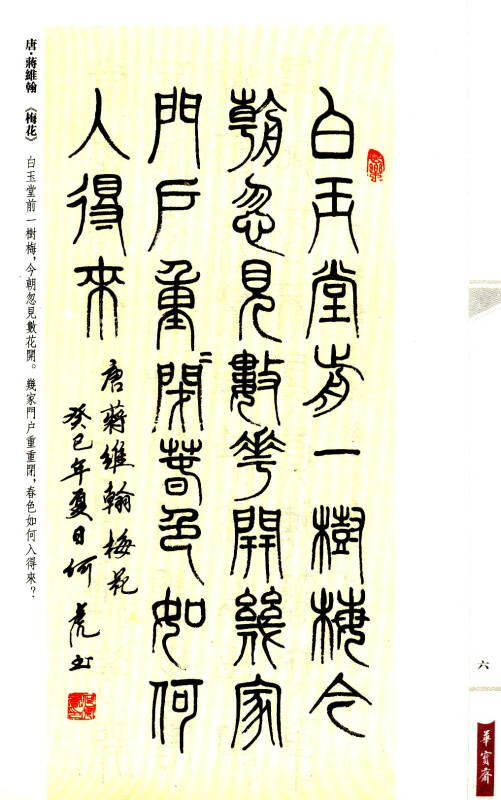 白玉堂前一樹梅今
朝忽見數花開幾家
門戶重〻閉春色如何
入得來
唐蔣維翰梅花
癸巳年夏日何虎书
唐·蔣維翰 《梅花》 白玉堂前一樹梅，今朝忽見數花開。幾家門户重重閉，春色如何入得來？
六
華寶齋